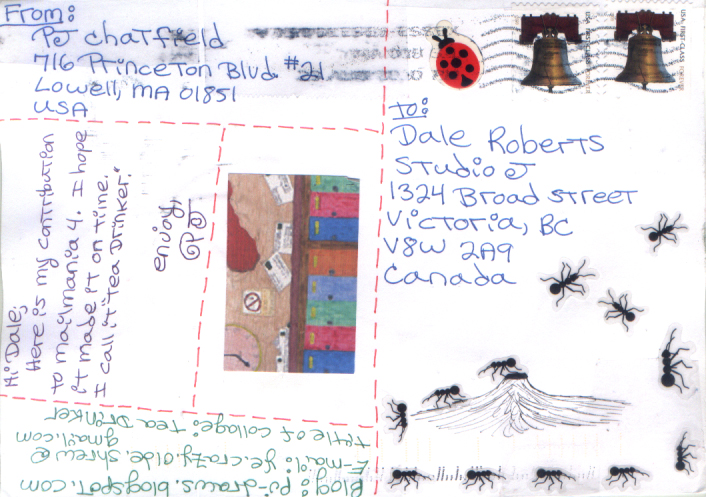 From:
PJ Chatfield
716 Princeton Blvd. #21
Lowell, MA 01851
USA
To:
Dale Roberts
Studio J
1324 Broad Street
Victoria, BC
V8W 2A9
Canada
Hi Dale,
Here is my contribution
to mailmania 4. I hope
it made it on time.
I call it "Tea Drinker."
enjoy,
PJ
Blog: pj-draws.blogspot.com
E-mail: ye.crazy.olde.shrew@
gmail.com
title of collage: Tea Drinker
USA FIRST-CLASS FOREVER